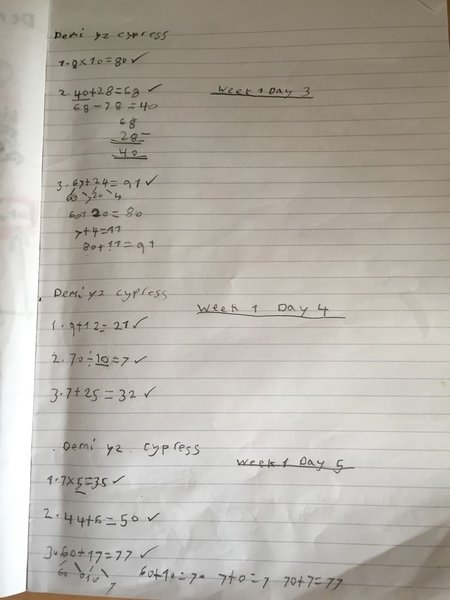 Demi y2 cypress
1. 8x10=80 ✓
2. 40+28=68 ✓
Week 1 Day 3
68-28=40
68
28-
40
3. 67+24=91 ✓
60 7 20 4
60+20=80
7+4=11
80+11=91
Demi y2 cypress
Week 1 Day 4
1. 9+12=21 ✓
2. 70÷10=7 ✓
3. 7+25=32 ✓
Demi y2 cypress
Week 1 Day 5
1. 7x5=35 ✓
2. 44+6=50 ✓
3. 60+17=77 ✓
60 0 10 7 60+10=70 7+0=7 70+7=77